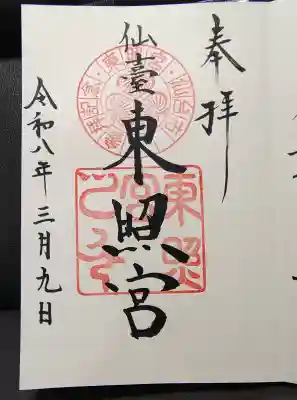 奉拝
仙臺東照宮
令和八年三月九日
東照宮